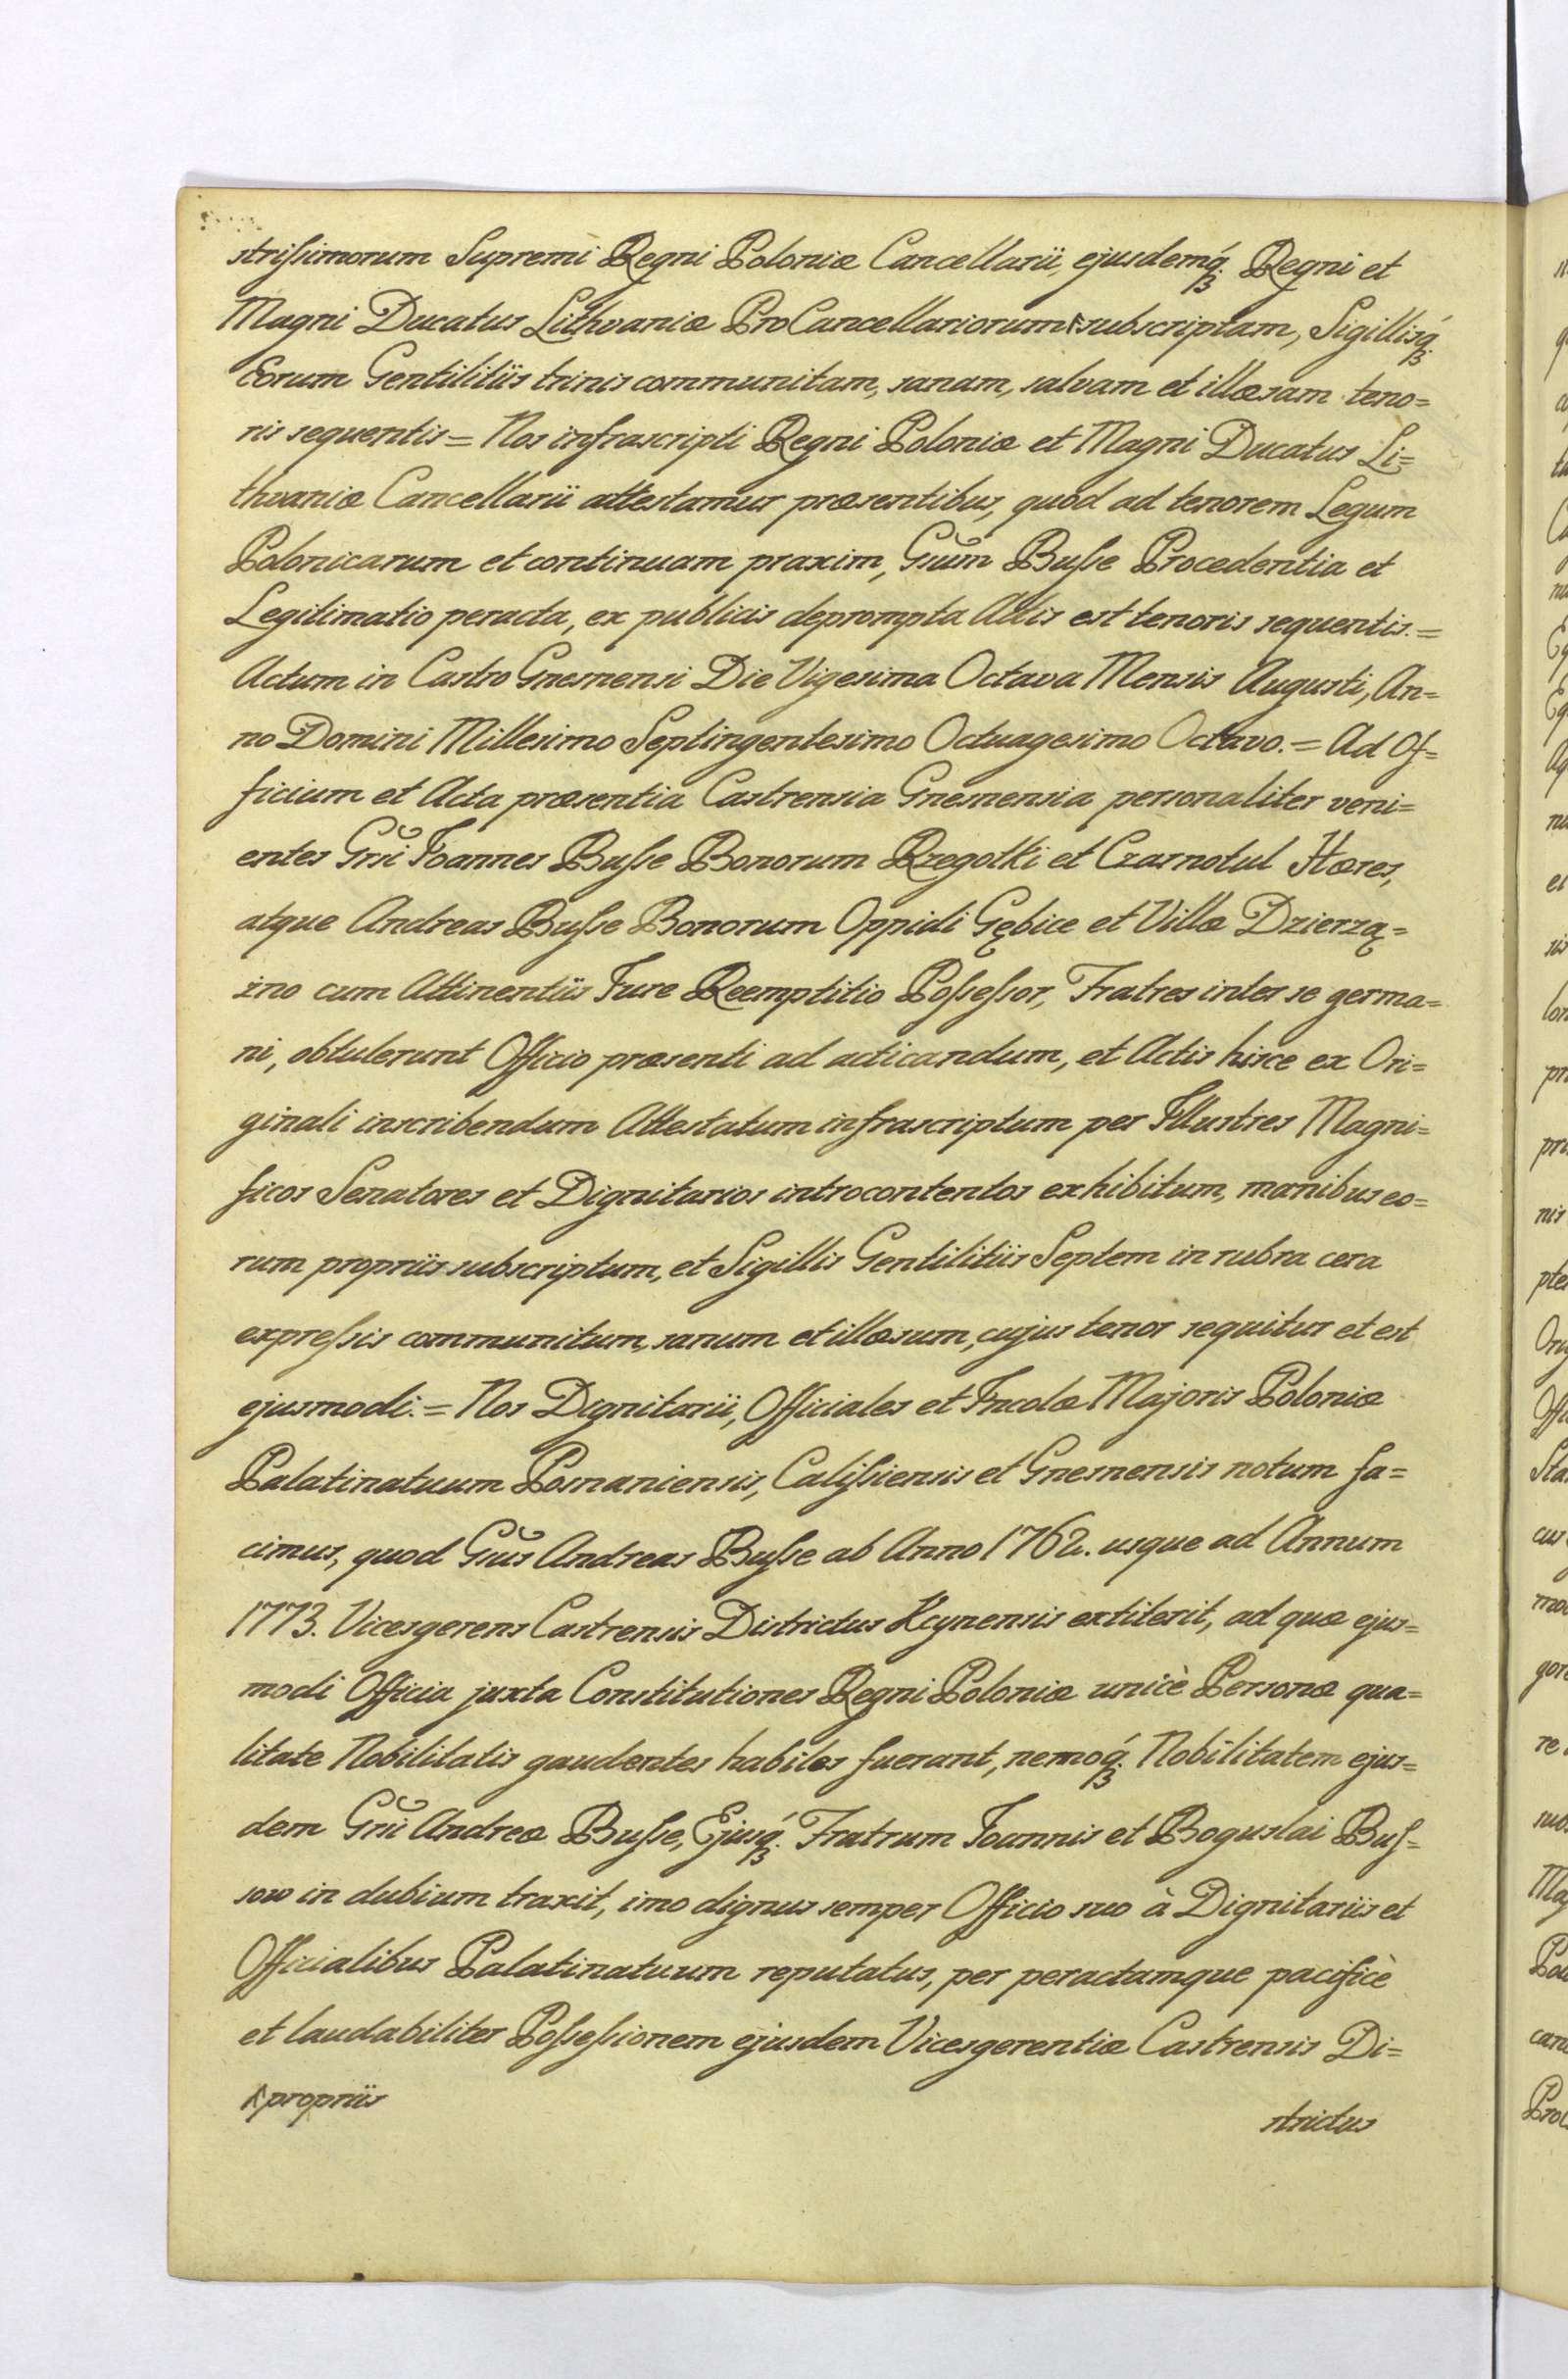 strissimorum Supremi Regni Poloniæ Cancellarii, ejusdemq́ꝫ Regni et
Magni Ducatus Lithvaniæ ProCancellariorum subscriptam, Sigillisq́ꝫ
Eorum Gentilitiis trinis communitam, sanam, salvam et illæsam teno=
ris sequentis = Nos infrascripti Regni Poloniæ et Magni Ducatus Li=
thvaniæ Cancellarii attestamur præsentibus, quod ad tenorem Legum
Polonicarum et continuam praxim, Grum̃ Busse Procedentia et
Legitimatio peracta, ex publicis deprompta Actis est tenoris sequentis. =
Actum in Castro Gnesnensi Die Vigesima Octava Mensis Augusti, An=
no Domini Millesimo Septingentesimo Octuagesimo Octavo. = Ad Of=
ficium et Acta præsentia Castrensia Gnesnensia personaliter veni=
entes Grsi Joannes Busse Bonorum Rzegotki et Czarnotul Hæres,
atque Andreas Busse Bonorum Oppidi Gębice et Villæ Dzierzą=
zno cum Attinentiis Jure Reemptitio Possessor, Fratres inter se germa=
ni, obtulerunt Officio præsenti ad acticandum, et Actis hisce ex Ori=
ginali inscribendum Attestatum infrascriptum per Illustres Magni=
ficos Senatores et Dignitarios introcontentos exhibitum, manibus eo=
rum propriis subscriptum, et Sigillis Gentilitiis Septem in rubra cera
expressis communitum, sanum et illæsum, cujus tenor sequitur et est
ejusmodi. = Nos Dignitarii, Officiales et Incolæ Majoris Poloniæ
Palatinatuum Posnaniensis, Calissiensis et Gnesnensis notum fa=
cimus, quod Grus̃ Andreas Busse ab Anno 1762. usque ad Annum
1773. Vicesgerens Castrensis Districtus Kcynensis extiterit, ad quæ ejus=
modi Officia juxta Constitutiones Regni Poloniæ unicè Personæ qua=
litate Nobilitatis gaudentes habiles fuerant, nemoq́ꝫ Nobilitatem ejus=
dem Grsi Andreæ Busse, Ejusq́ꝫ Fratrum Joannis et Boguslai Bus=
sow in dubium traxit, imo dignus semper Officio suo à Dignitariis et
Officialibus Palatinatuum reputatus, per peractamque pacificè
et laudabiliter Possessionem ejusdem Vicesgerentiæ Castrensis Di=
propriis
strictus